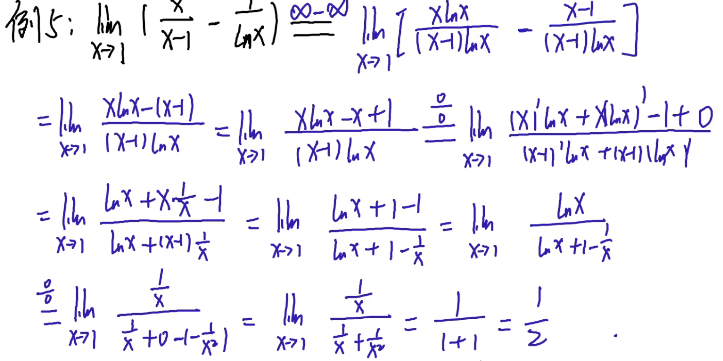 例5: lim x→1 ( x/(x-1) - 1/lnx ) ∞-∞ = lim x→1 [ xlnx/((x-1)lnx) - (x-1)/((x-1)lnx) ]
= lim x→1 (xlnx-(x-1))/((x-1)lnx) = lim x→1 (xlnx-x+1)/((x-1)lnx) 0/0 = lim x→1 ((x)'lnx+x(lnx)'-1+0)/((x-1)'lnx+(x-1)(lnx)')
= lim x→1 (lnx+x·1/x-1)/(lnx+(x-1)1/x) = lim x→1 (lnx+1-1)/(lnx+1-1/x) = lim x→1 lnx/(lnx+1-1/x)
0/0 = lim x→1 (1/x)/(1/x+0-1-1/x²) = lim x→1 (1/x)/(1/x+1/x²) = 1/(1+1) = 1/2 .